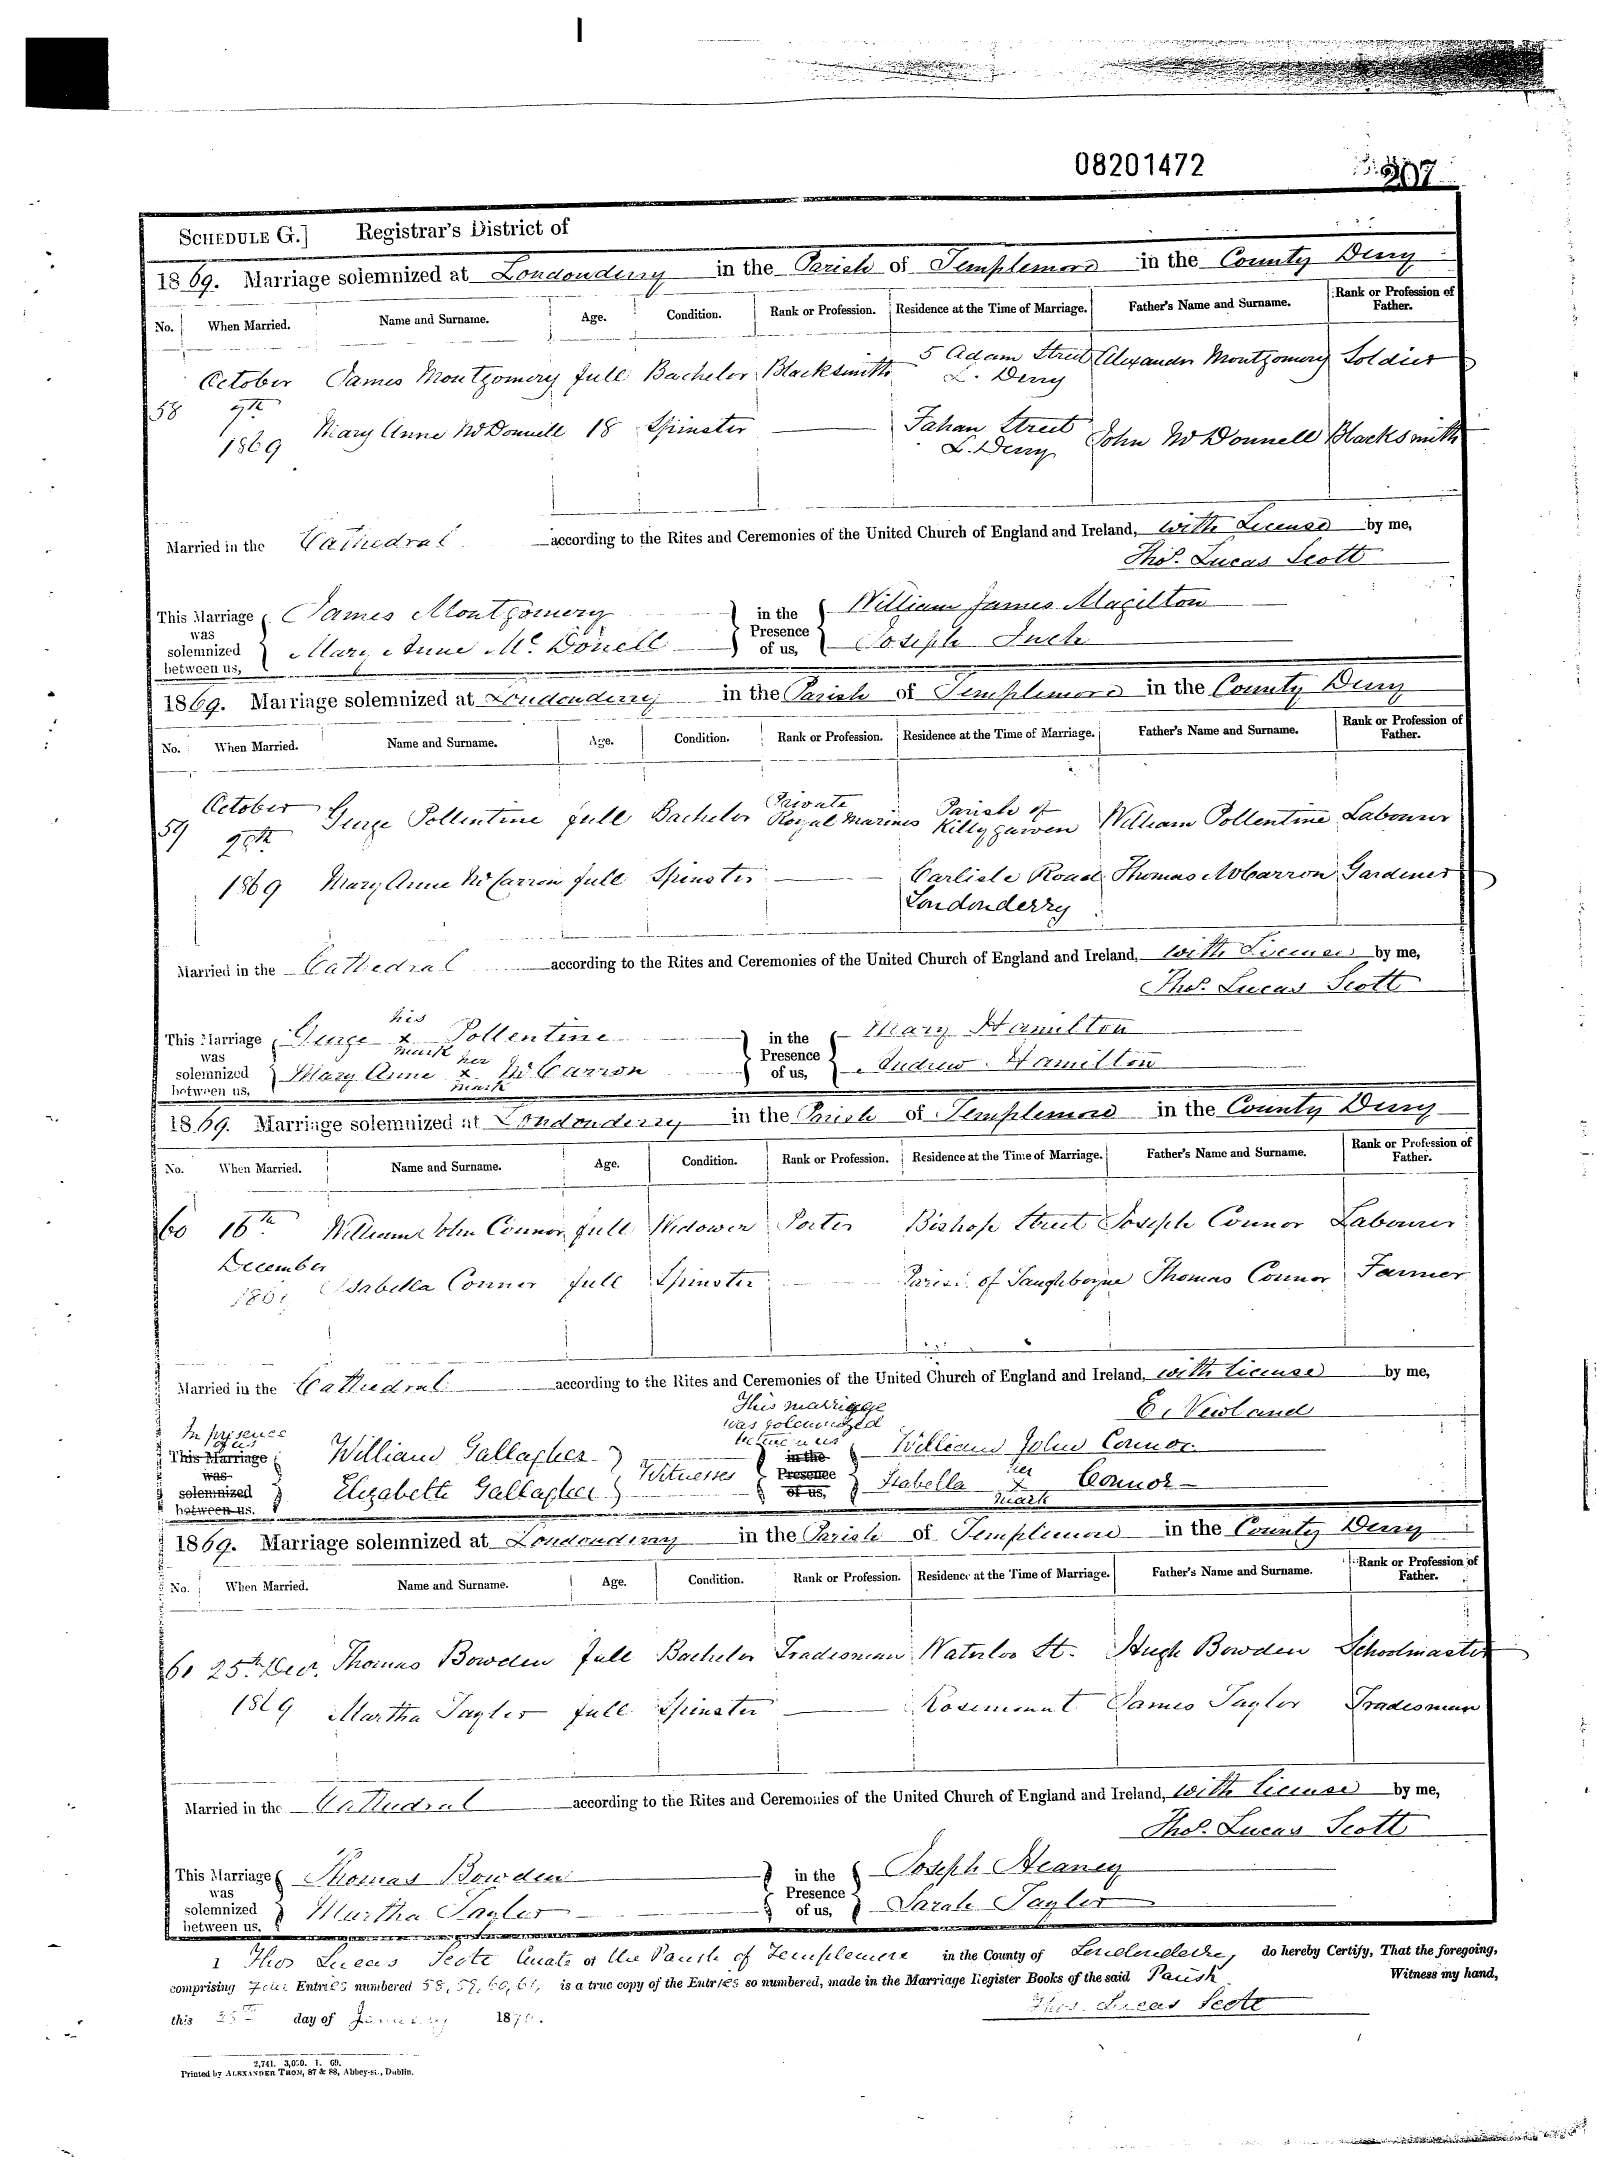 08201472
207
SCHEDULE G.] Registrar's District of
1869. Marriage solemnized at Londonderry in the Parish of Templemore in the County Derry
No. When Married. Name and Surname. Age. Condition. Rank or Profession. Residence at the Time of Marriage. Father's Name and Surname. Rank or Profession of Father.
October James Montgomery full Bachelor Blacksmith 5 Adam Street L. Derry Alexander Montgomery Soldier
58 9th
1869 Mary Anne McDonnell 18 Spinster Fahan Street L. Derry John McDonnell Blacksmith
Married in the Cathedral according to the Rites and Ceremonies of the United Church of England and Ireland, with License by me,
Thos. Lucas Scott
This Marriage was solemnized between us, James Montgomery in the Presence of us, William James Magilton
Mary Anne Mc Donell Joseph
1869. Marriage solemnized at Londonderry in the Parish of Templemore in the County Derry
No. When Married. Name and Surname. Age. Condition. Rank or Profession. Residence at the Time of Marriage. Father's Name and Surname. Rank or Profession of Father.
October George Pollentine full Bachelor Private Royal Marines Parish of William Pollentine Labourer
59
1869 Mary Anne McCarron full Spinster Carlisle Road Londonderry Thomas McCarron Gardener
Married in the Cathedral according to the Rites and Ceremonies of the United Church of England and Ireland, with License by me,
Thos. Lucas Scott
This Marriage was solemnized between us, George his x mark Pollentine in the Presence of us, Mary Hamilton
Mary Anne her x mark McCarron Andrew Hamilton
1869. Marriage solemnized at Londonderry in the Parish of Templemore in the County Derry
No. When Married. Name and Surname. Age. Condition. Rank or Profession. Residence at the Time of Marriage. Father's Name and Surname. Rank or Profession of Father.
60 16th William John Connor full Widower Porter Bishop Street Joseph Connor Labourer
December
Isabella Connor full Spinster Parish of Taughboyne Thomas Connor Farmer
Married in the Cathedral according to the Rites and Ceremonies of the United Church of England and Ireland, with license by me,
E. Newland
This marriage was solemnized between us
In presence of us
This Marriage was solemnized between us, William Gallagher Witnesses in the Presence of us, William John Connor
Elizabeth Gallagher Isabella her x mark Connor
1869. Marriage solemnized at Londonderry in the Parish of Templemore in the County Derry
No. When Married. Name and Surname. Age. Condition. Rank or Profession. Residence at the Time of Marriage. Father's Name and Surname. Rank or Profession of Father.
61 25th Decr. Thomas Bowden full Bachelor Tradesman Waterloo St. Hugh Bowden Schoolmaster
1869 Martha Taylor full Spinster Rosemount James Taylor Tradesman
Married in the Cathedral according to the Rites and Ceremonies of the United Church of England and Ireland, with license by me,
Thos. Lucas Scott
This Marriage was solemnized between us, Thomas Bowden in the Presence of us, Joseph Heaney
Martha Taylor Sarah Taylor
I Thos Lucas Scott Curate of the Parish of Templemore in the County of Londonderry, do hereby Certify, That the foregoing,
comprising Four Entries numbered 58, 59, 60, 61, is a true copy of the Entries so numbered, made in the Marriage Register Books of the said Parish Witness my hand,
Thos. Lucas Scott
this 25th day of January 1870.
2,741. 3,000. 1. 69.
Printed by ALEXANDER THOM, 87 & 88, Abbey-st., Dublin.